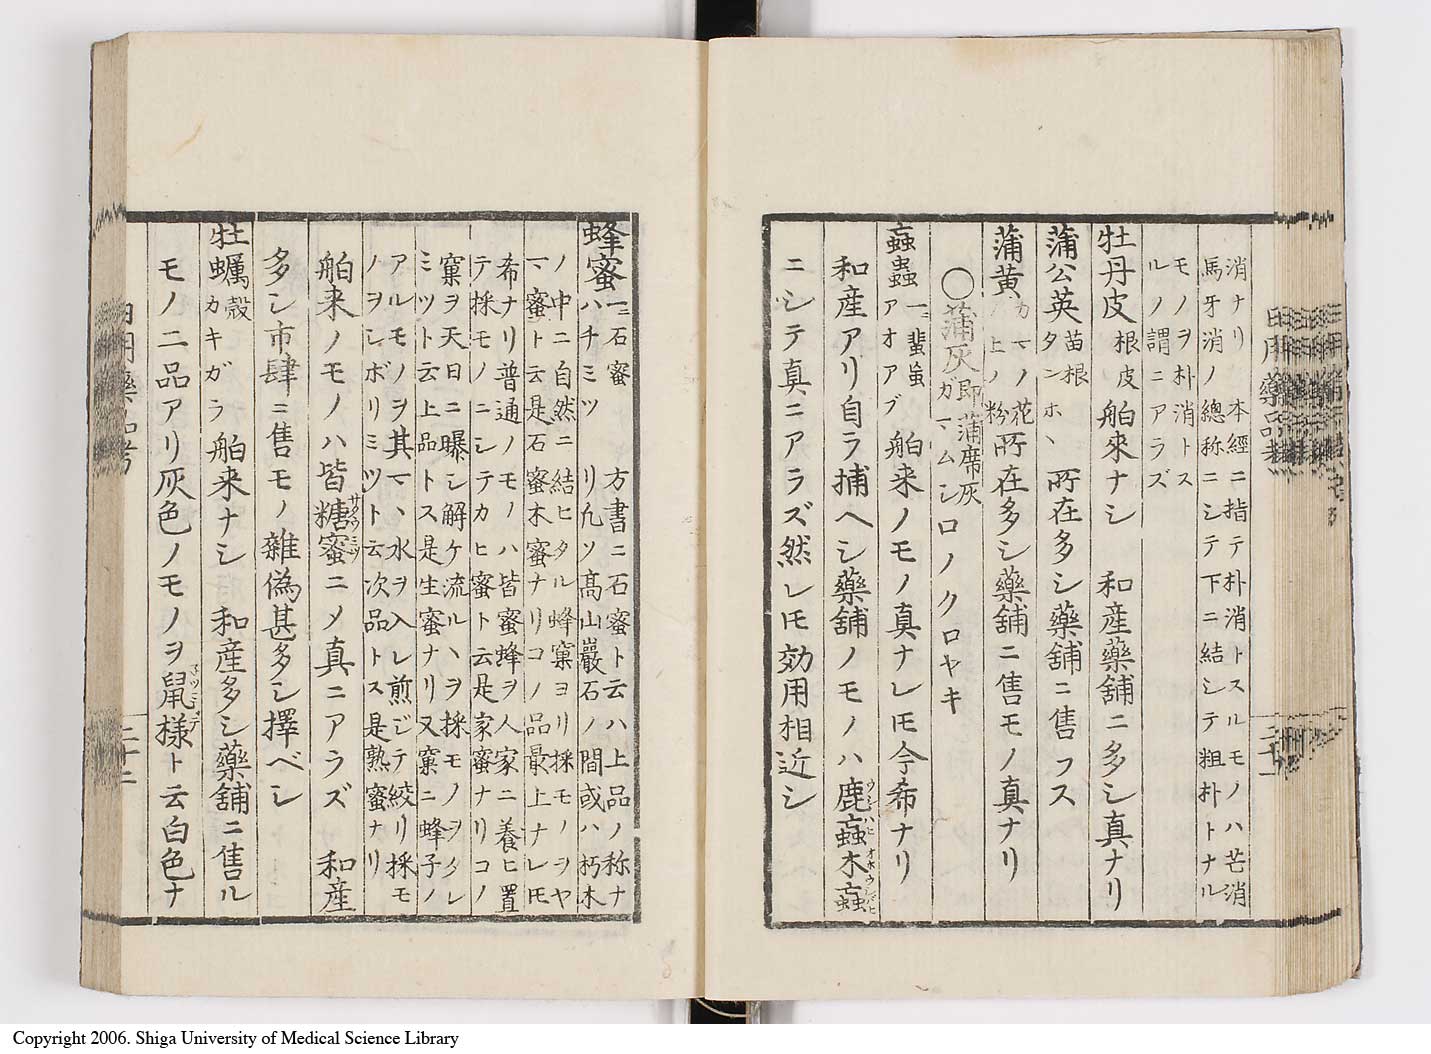 消ナリ 本經ニ指テ朴消トスルモノハ芒消
馬牙消ノ總称ニシテ下ニ結シテ粗朴トナル
モノヲ朴消トス
ルノ謂ニアラズ
牡丹皮 根皮 舶來ナシ 和産藥舗ニ多シ真ナリ
蒲公英 苗根 タンホヽ 所在多シ藥舗ニ售フス
蒲黄 カマノ花ノ上ノ粉 所在多シ藥舗ニ售モノ真ナリ
〇蒲灰 即蒲席灰 ガマムシロノクロヤキ
蝱蟲 一ニ蜚蝱 アオアブ 舶来ノモノ真ナレ𪜈今希ナリ
和産アリ自ラ捕ヘシ藥舗ノモノハ鹿蝱木蝱
ニシテ真ニアラズ然レ𪜈効用相近シ
日用藥品考
蜂蜜 一ニ石蜜 ハチミツ 方書ニ石蜜ト云ハ上品ノ称ナ
リ凢ソ髙山巖石ノ間或ハ朽木
ノ中ニ自然ニ結ヒタル蜂窠ヨリ採モノヲヤ
マ蜜ト云是石蜜木蜜ナリコノ品最上ナレ𪜈
希ナリ普通ノモノハ皆蜜蜂ヲ人家ニ養ヒ置
テ採モノニシテカヒ蜜ト云是家蜜ナリコノ
窠ヲ天日ニ曝シ解ケ流ルヽヲ採モノヲタレ
ミツト云上品トス是生蜜ナリ又窠ニ蜂子ノ
アルモノヲ其マヽ水ヲ入レ煎ジテ絞リ採モ
ノヲシボリミツト云次品トス是熟蜜ナリ
舶来ノモノハ皆糖蜜ニメ真ニアラズ 和産
多シ市肆ニ售モノ雜偽甚多シ擇ベシ
牡蠣 殻 カキガラ 舶来ナシ 和産多シ藥舗ニ售ル
モノ二品アリ灰色ノモノヲ鼠様ト云白色ナ
日用藥品考
二十二